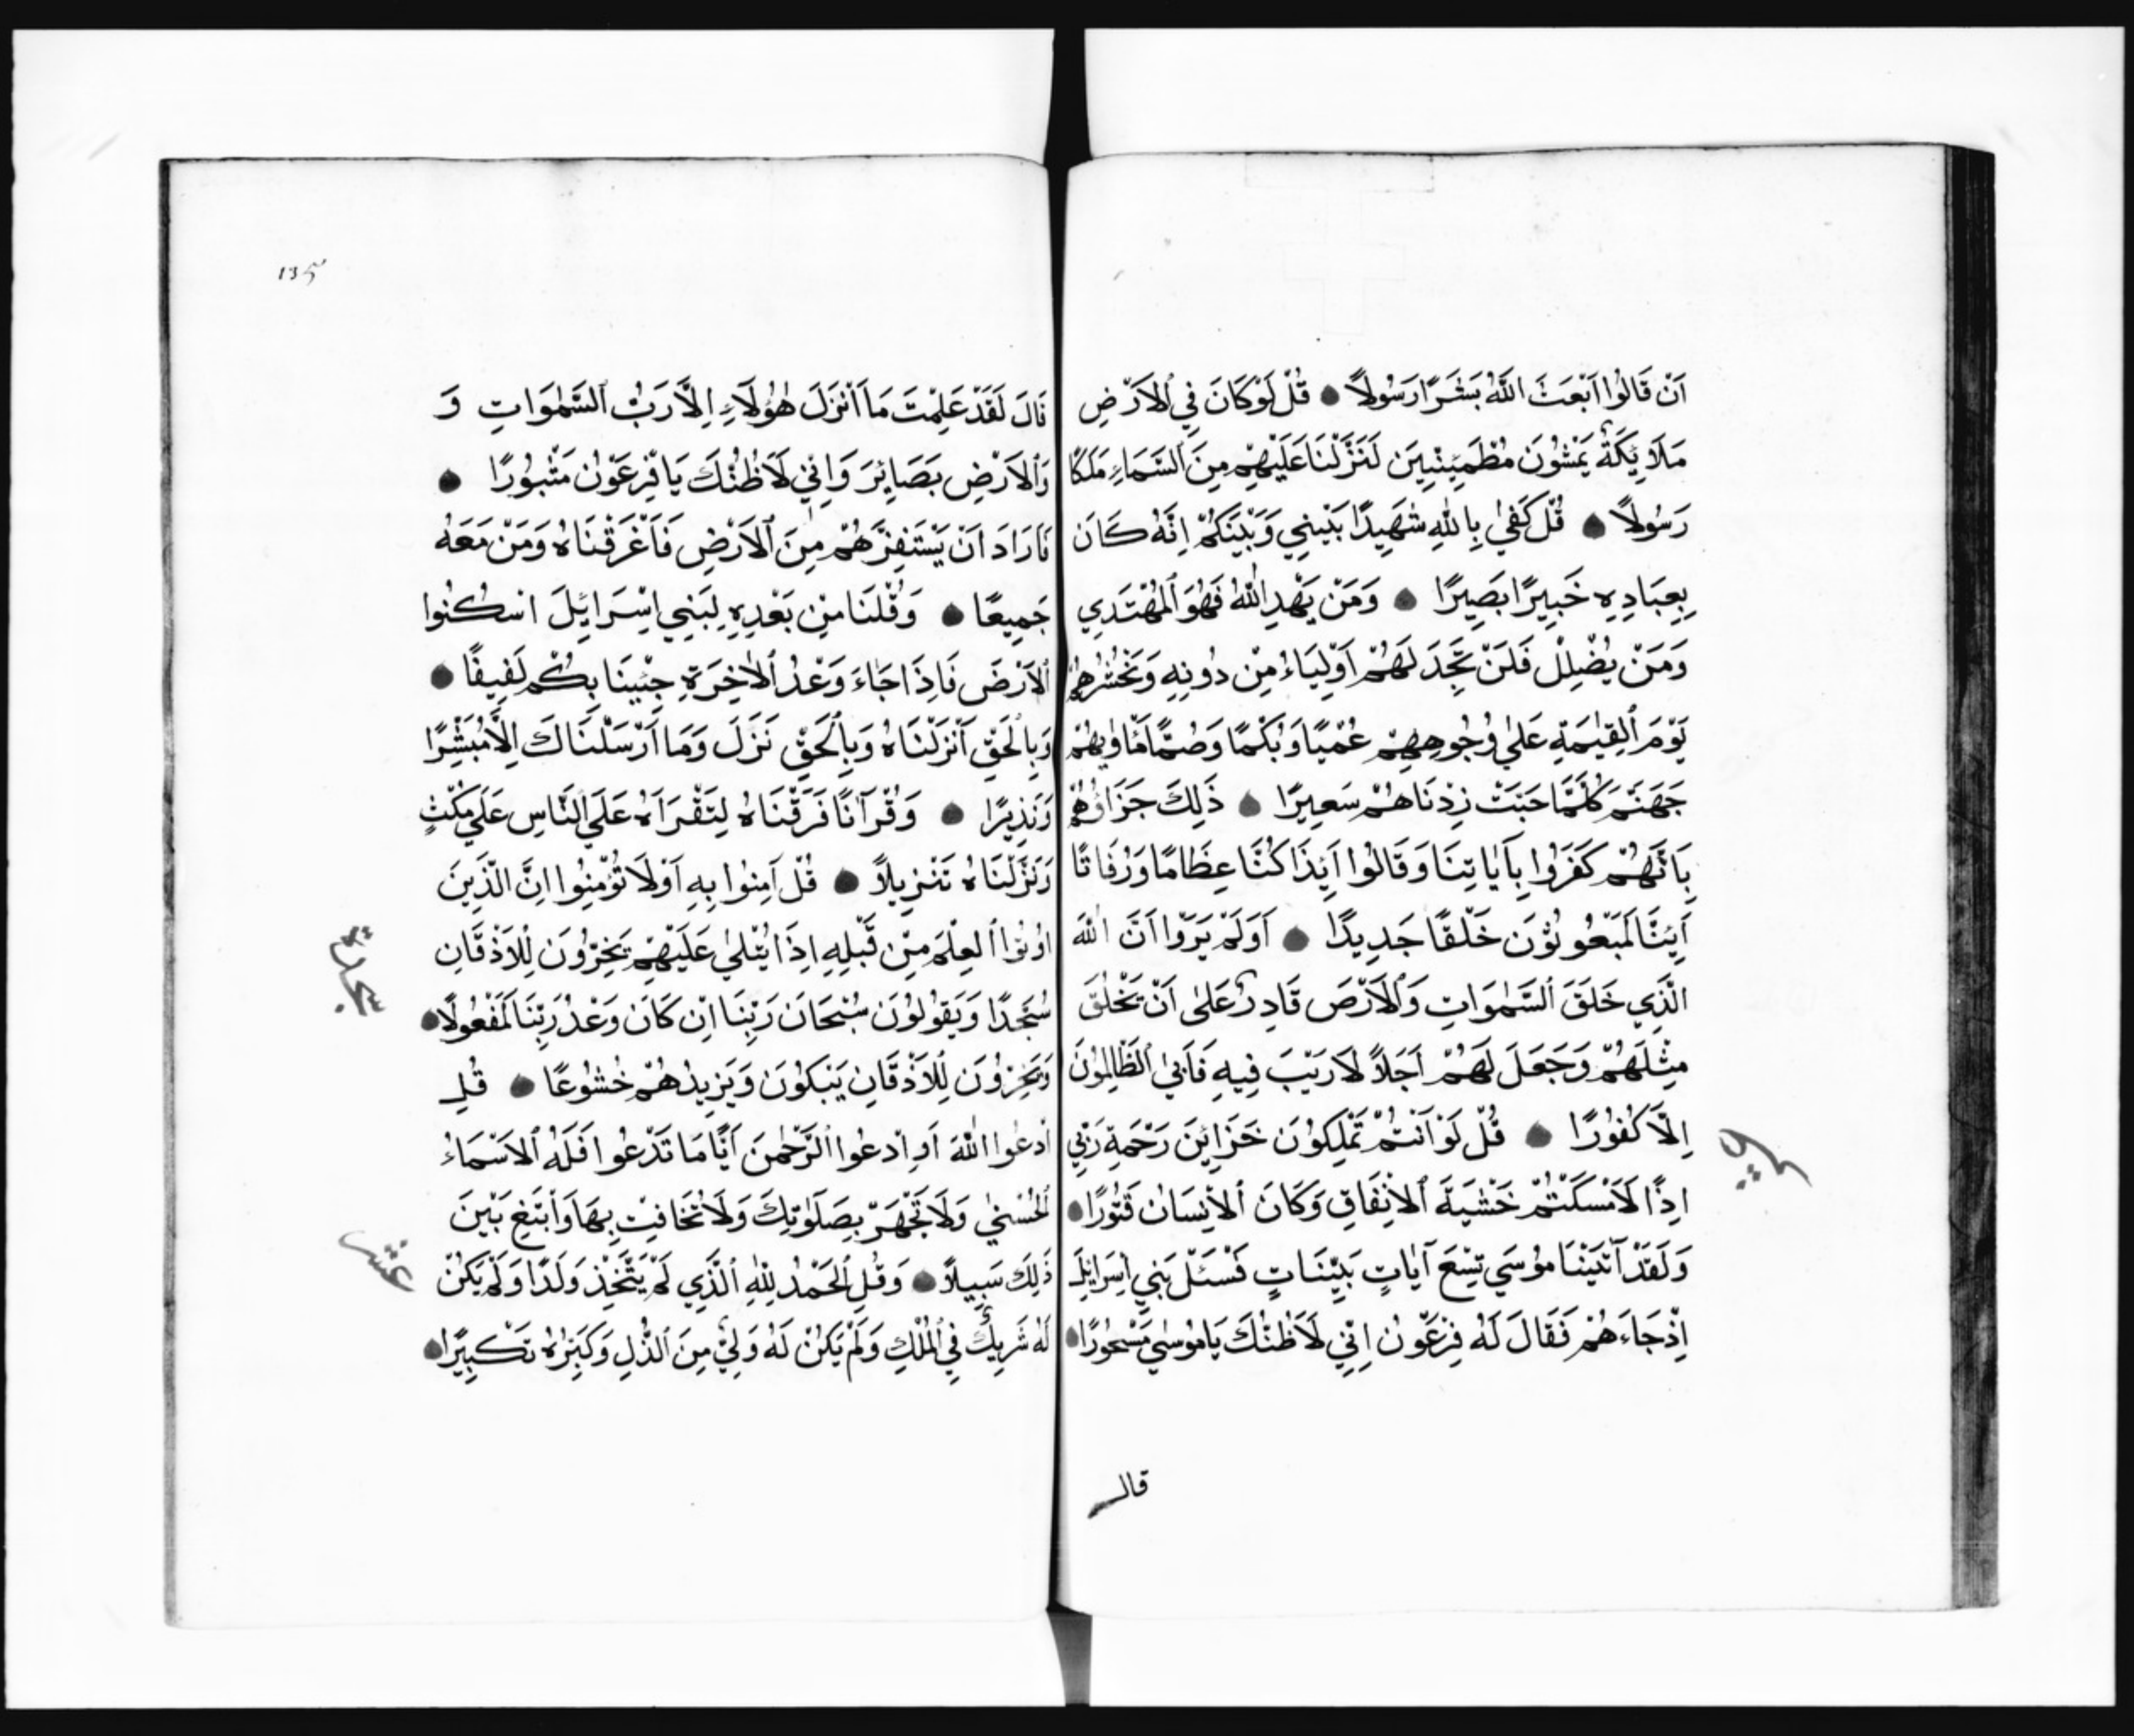 اَنْ قَالُوا اَبَعَثَ اللّٰهُ بَشَرًا رَسُولاً ۞ قُلْ لَوْ كَانَ فِي الْاَرْضِ
مَلَائِكَةٌ يَمْشُونَ مُطْمَئِنِّينَ لَنَزَّلْنَا عَلَيْهِمْ مِنَ السَّمَاءِ مَلَكًا
رَسُولاً ۞ قُلْ كَفٰى بِاللّٰهِ شَهِيدًا بَيْنِي وَبَيْنَكُمْ اِنَّهُ كَانَ
بِعِبَادِهِ خَبِيرًا بَصِيرًا ۞ وَمَنْ يَهْدِ اللّٰهُ فَهُوَ الْمُهْتَدِي
وَمَنْ يُضْلِلْ فَلَنْ تَجِدَ لَهُمْ اَوْلِيَاءَ مِنْ دُونِهِ وَنَحْشُرُهُمْ
يَوْمَ الْقِيٰمَةِ عَلٰى وُجُوهِهِمْ عُمْيًا وَبُكْمًا وَصُمًّا مَأْوٰيهُمْ
جَهَنَّمُ كُلَّمَا خَبَتْ زِدْنَاهُمْ سَعِيرًا ۞ ذٰلِكَ جَزَاؤُهُمْ
بِاَنَّهُمْ كَفَرُوا بِآيَاتِنَا وَقَالُوا اَئِذَا كُنَّا عِظَامًا وَرُفَاتًا
اَئِنَّا لَمَبْعُوثُونَ خَلْقًا جَدِيدًا ۞ اَوَلَمْ يَرَوْا اَنَّ اللّٰهَ
الَّذِي خَلَقَ السَّمٰوَاتِ وَالْاَرْضَ قَادِرٌ عَلٰى اَنْ يَخْلُقَ
مِثْلَهُمْ وَجَعَلَ لَهُمْ اَجَلاً لَا رَيْبَ فِيهِ فَاَبَى الظَّالِمُونَ
اِلَّا كُفُورًا ۞ قُلْ لَوْ اَنْتُمْ تَمْلِكُونَ خَزَائِنَ رَحْمَةِ رَبِّي
اِذًا لَاَمْسَكْتُمْ خَشْيَةَ الْاِنْفَاقِ وَكَانَ الْاِنْسَانُ قَتُورًا ۞
وَلَقَدْ آتَيْنَا مُوسَى تِسْعَ آيَاتٍ بَيِّنَاتٍ فَسْئَلْ بَنِي اِسْرَائِلَ
اِذْ جَاءَهُمْ فَقَالَ لَهُ فِرْعَوْنُ اِنِّي لَاَظُنُّكَ يَا مُوسٰى مَسْحُورًا ۞
قال
135
قَالَ لَقَدْ عَلِمْتَ مَا اَنْزَلَ هٰؤُلَاءِ اِلَّا رَبُّ السَّمٰوَاتِ وَ
وَالْاَرْضِ بَصَائِرَ وَاِنِّي لَاَظُنُّكَ يَا فِرْعَوْنُ مَثْبُورًا ۞
فَاَرَادَ اَنْ يَسْتَفِزَّهُمْ مِنَ الْاَرْضِ فَاَغْرَقْنَاهُ وَمَنْ مَعَهُ
جَمِيعًا ۞ وَقُلْنَا مِنْ بَعْدِهِ لِبَنِي اِسْرَائِلَ اسْكُنُوا
الْاَرْضَ فَاِذَا جَاءَ وَعْدُ الْاٰخِرَةِ جِئْنَا بِكُمْ لَفِيفًا ۞
وَبِالْحَقِّ اَنْزَلْنَاهُ وَبِالْحَقِّ نَزَلَ وَمَا اَرْسَلْنَاكَ اِلَّا مُبَشِّرًا
وَنَذِيرًا ۞ وَقُرْآنًا فَرَقْنَاهُ لِتَقْرَاَهُ عَلَى النَّاسِ عَلَى مُكْثٍ
وَنَزَّلْنَاهُ تَنْزِيلاً ۞ قُلْ آمِنُوا بِهِ اَوْ لَا تُؤْمِنُوا اِنَّ الَّذِينَ
اُوتُوا الْعِلْمَ مِنْ قَبْلِهِ اِذَا يُتْلٰى عَلَيْهِمْ يَخِرُّونَ لِلْاَذْقَانِ
سُجَّدًا وَيَقُولُونَ سُبْحَانَ رَبِّنَا اِنْ كَانَ وَعْدُ رَبِّنَا لَمَفْعُولاً ۞
وَيَخِرُّونَ لِلْاَذْقَانِ يَبْكُونَ وَيَزِيدُهُمْ خُشُوعًا ۞ قُلِ
ادْعُوا اللّٰهَ اَوِ ادْعُوا الرَّحْمٰنَ اَيًّا مَا تَدْعُوا فَلَهُ الْاَسْمَاءُ
الْحُسْنٰى وَلَا تَجْهَرْ بِصَلَوتِكَ وَلَا تُخَافِتْ بِهَا وَابْتَغِ بَيْنَ
ذٰلِكَ سَبِيلاً ۞ وَقُلِ الْحَمْدُ لِلّٰهِ الَّذِي لَمْ يَتَّخِذْ وَلَدًا وَلَمْ يَكُنْ
لَهُ شَرِيكٌ فِي الْمُلْكِ وَلَمْ يَكُنْ لَهُ وَلِيٌّ مِنَ الذُّلِ وَكَبِّرْهُ تَكْبِيرًا ۞
سجدة
عشر